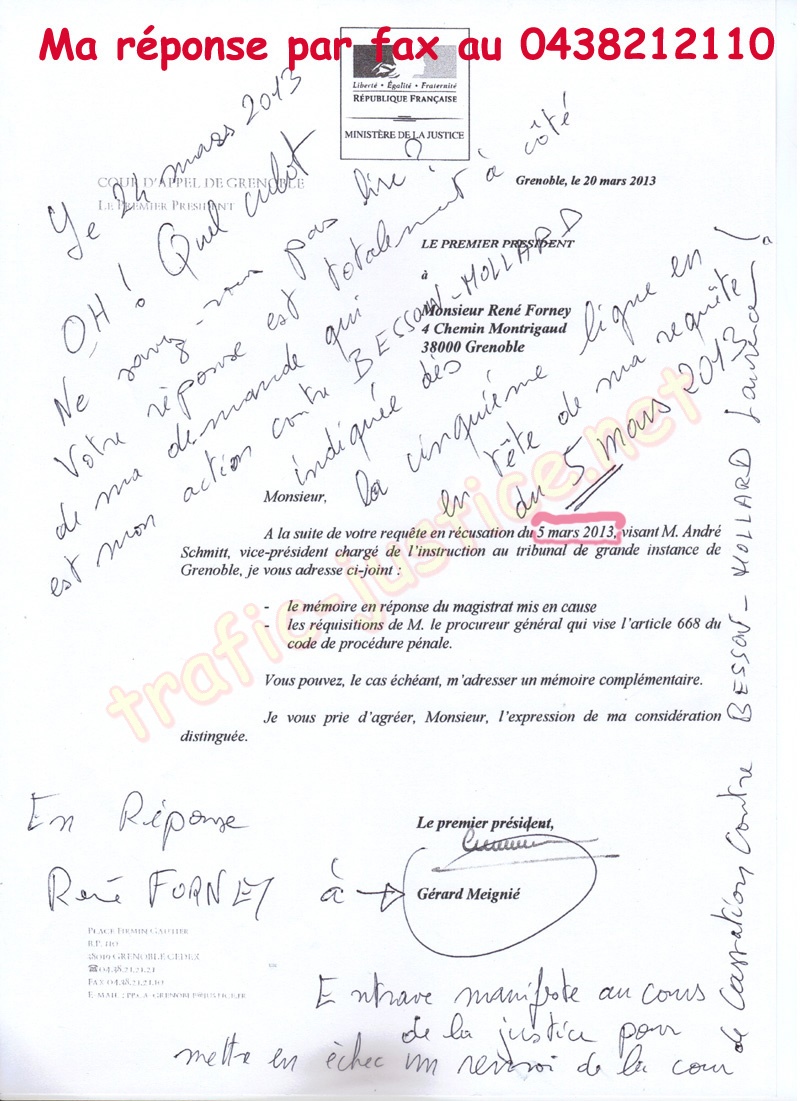 Ma réponse par fax au 0438212110
Liberté • Égalité • Fraternité
RÉPUBLIQUE FRANÇAISE
MINISTÈRE DE LA JUSTICE
COUR D'APPEL DE GRENOBLE
LE PREMIER PRESIDENT
Grenoble, le 20 mars 2013
LE PREMIER PRESIDENT
à
Monsieur René Forney
4 Chemin Montrigaud
38000 Grenoble
Le 24 mars 2013
OH! Quel culot
Ne savez-vous pas lire?
Votre réponse est totalement à côté
de ma demande qui
est mon action contre BESSON-HOLLARD
indiquée dès
la cinquième ligne en
en tête de ma requête!
du 5 mars 2013
Monsieur,
A la suite de votre requête en récusation du 5 mars 2013, visant M. André
Schmitt, vice-président chargé de l'instruction au tribunal de grande instance de
Grenoble, je vous adresse ci-joint :
- le mémoire en réponse du magistrat mis en cause
- les réquisitions de M. le procureur général qui vise l'article 668 du
code de procédure pénale.
Vous pouvez, le cas échéant, m'adresser un mémoire complémentaire.
Je vous prie d'agréer, Monsieur, l'expression de ma considération
distinguée.
trafic-justice.net
Le premier président,
Gérard Meignié
En Réponse
René FORNEY à
PLACE FIRMIN GAUTIER
B.P. 110
38019 GRENOBLE CEDEX
☎ 04.38.21.21.21
FAX 04.38.21.21.10
E-MAIL : PP.CA-GRENOBLE@JUSTICE.FR
Entrave manifeste au cours
de la justice pour
mettre en échec un renvoi de la cour
de Cassation contre BESSON-HOLLARD Laurence